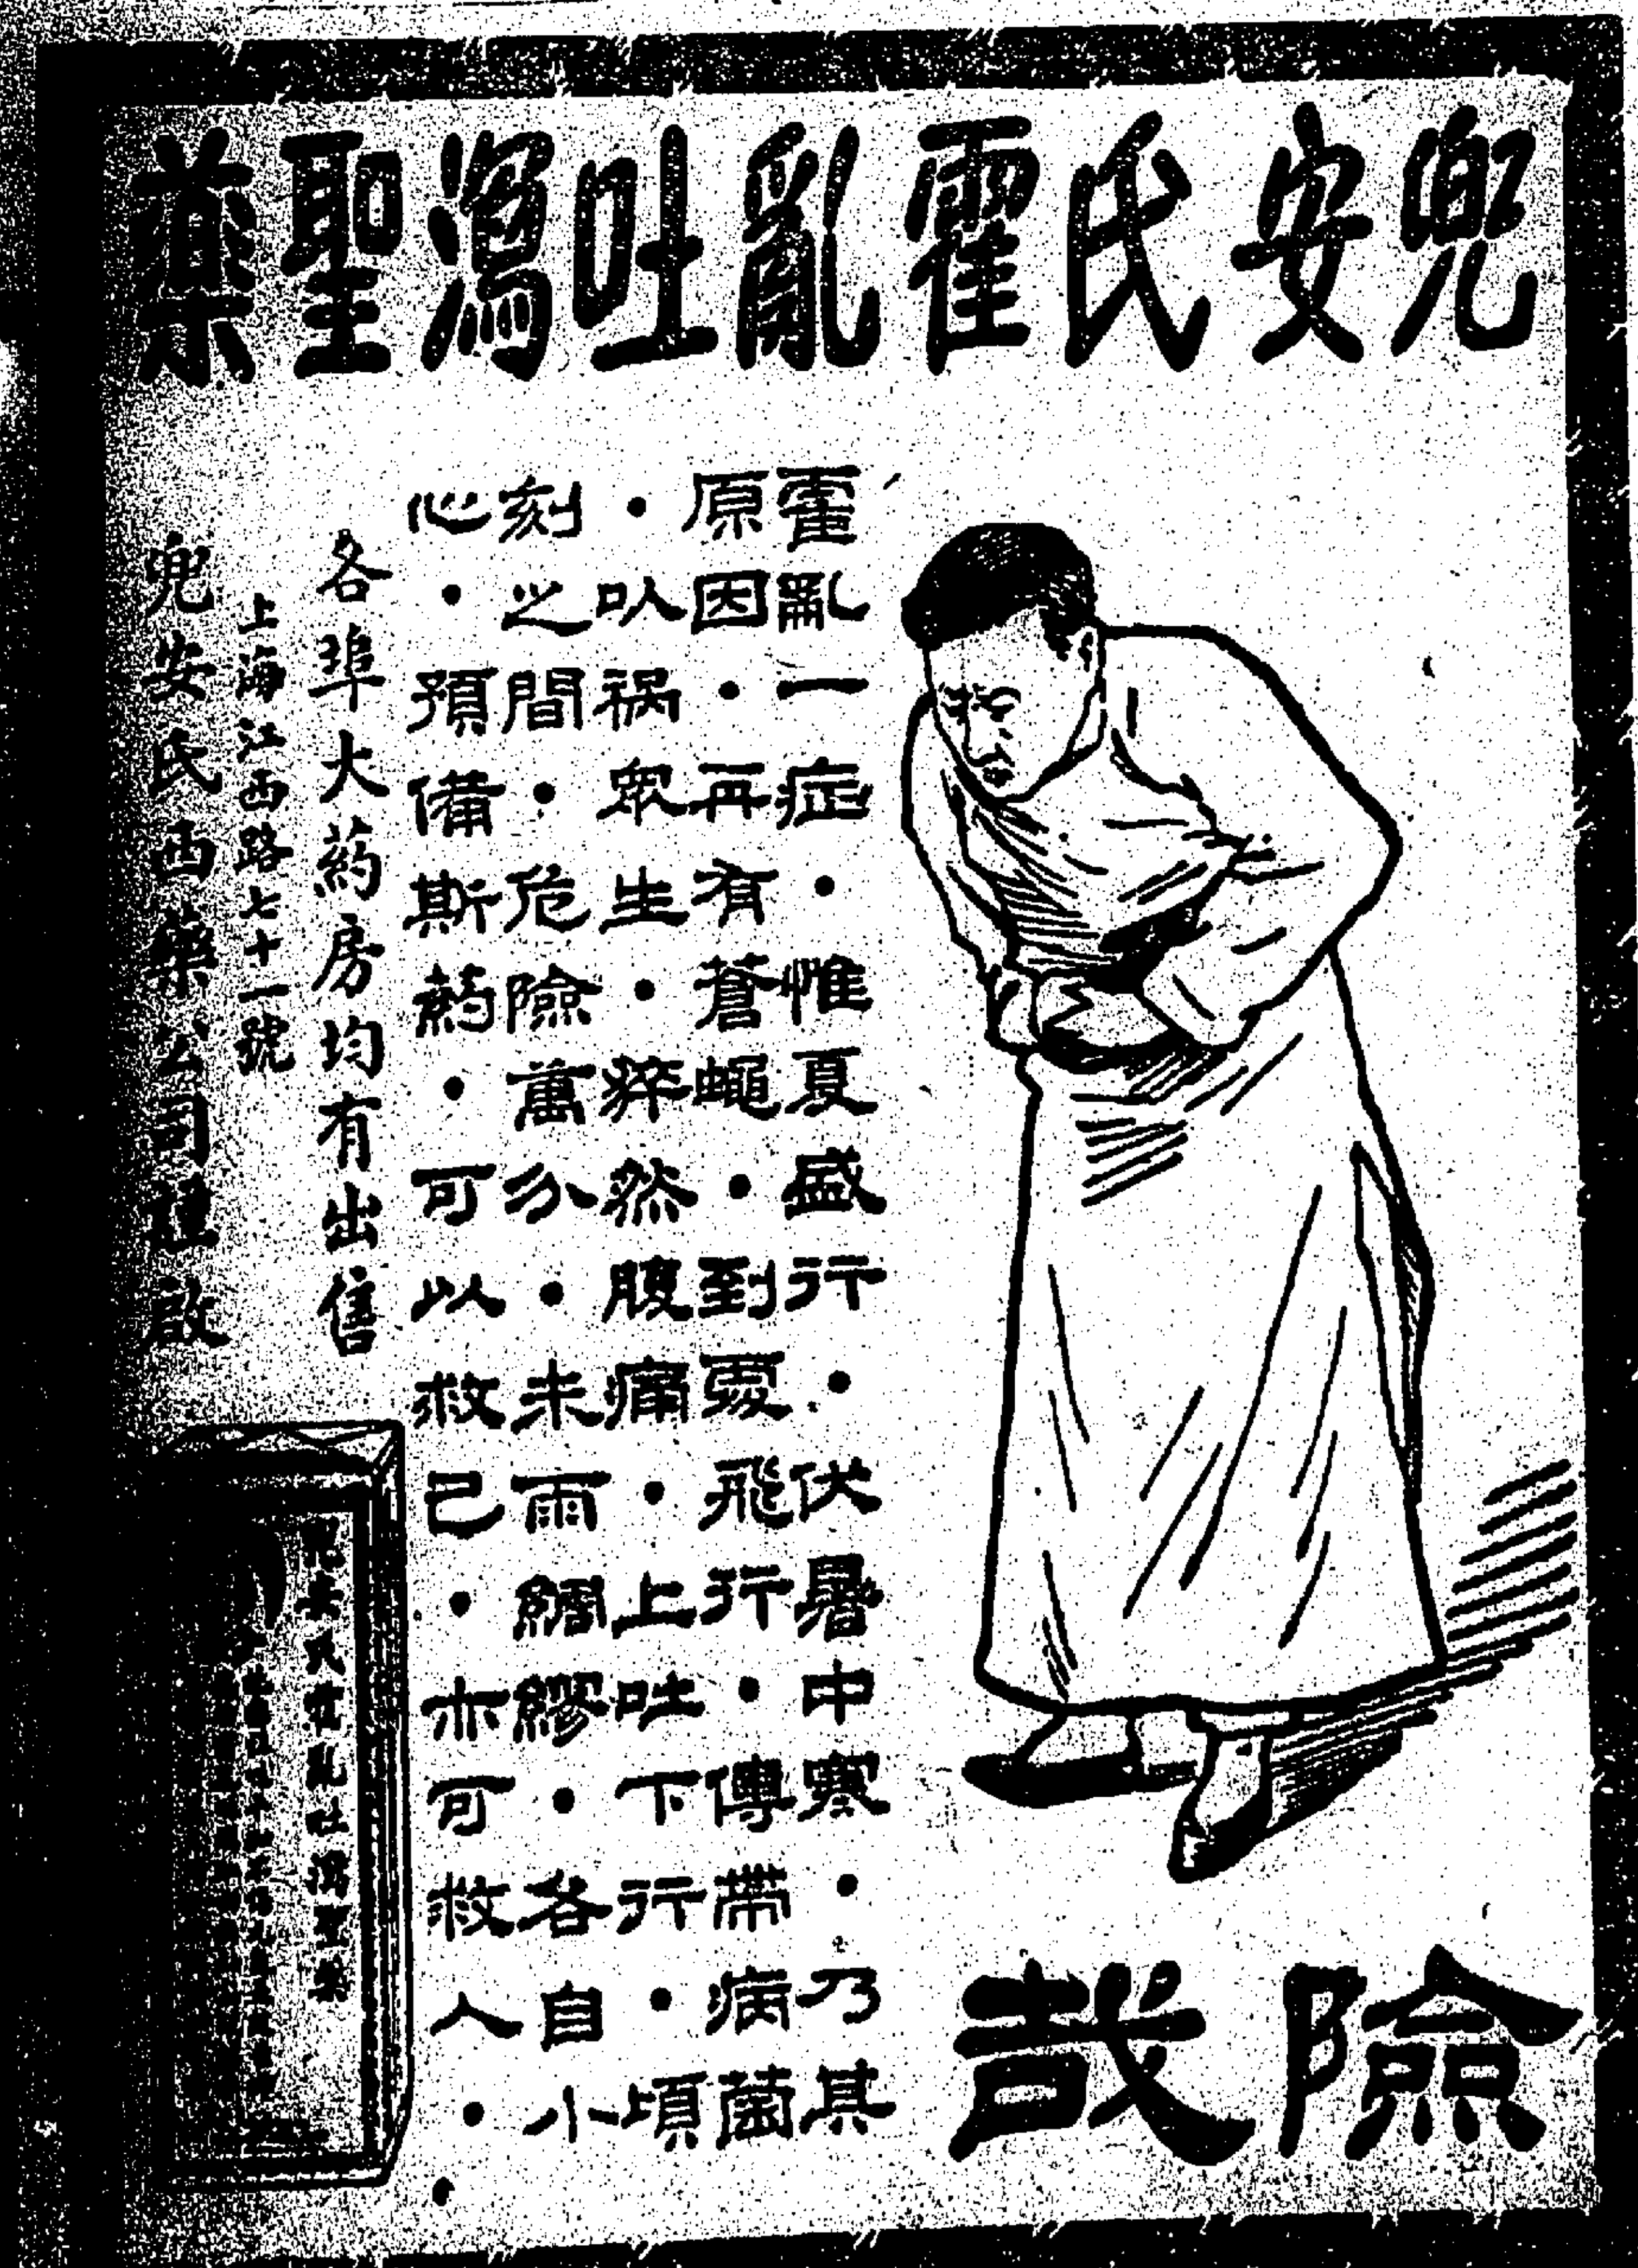 兜安氏霍亂吐瀉聖藥
險哉
霍亂一症・惟夏盛行・伏暑中寒・乃其
原因・再有蒼蠅・到處飛行・傳帶病菌
・以禍衆生・猝然腹痛・上吐下行・頃
刻之間・危險萬分・未雨綢繆・各自小
心・預備斯葯・可以救己・亦可救人・
各埠大葯房均有出售
上海江西路七十一號
兜安氏西藥公司謹啟
兜安氏霍亂吐瀉聖藥